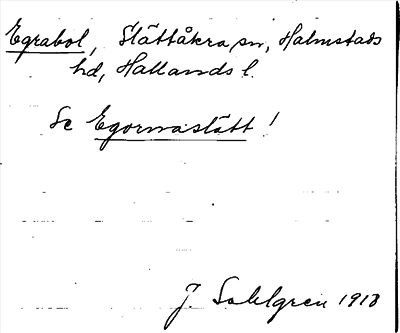 Egrabol, Slättåkra sn, Halmstads
hd, Hallands l.
Se Egornastätt!
J. Sahlgren 1918